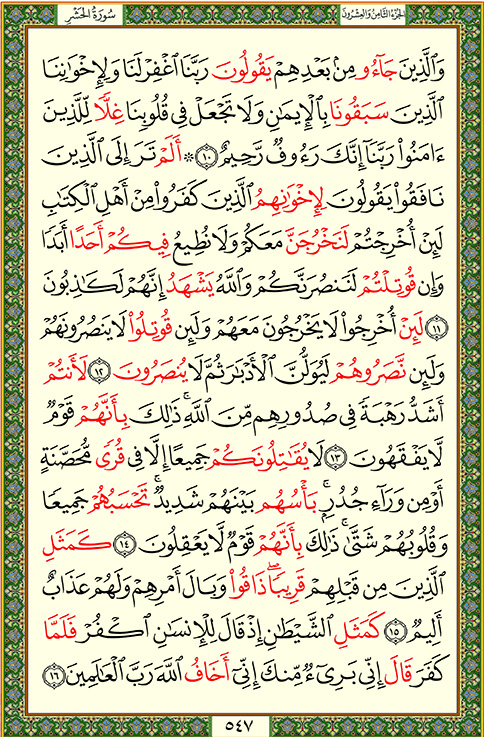 سُورَةُ الحَشْرِ الجُزْءُ الثَّامِنُ وَالعِشْرُونَ
وَٱلَّذِينَ جَآءُو مِنۢ بَعْدِهِمْ يَقُولُونَ رَبَّنَا ٱغْفِرْ لَنَا وَلِإِخْوَٰنِنَا
ٱلَّذِينَ سَبَقُونَا بِٱلْإِيمَٰنِ وَلَا تَجْعَلْ فِى قُلُوبِنَا غِلًّا لِّلَّذِينَ
ءَامَنُوا۟ رَبَّنَآ إِنَّكَ رَءُوفٌ رَّحِيمٌ ١٠ ۞ أَلَمْ تَرَ إِلَى ٱلَّذِينَ
نَافَقُوا۟ يَقُولُونَ لِإِخْوَٰنِهِمُ ٱلَّذِينَ كَفَرُوا۟ مِنْ أَهْلِ ٱلْكِتَٰبِ
لَئِنْ أُخْرِجْتُمْ لَنَخْرُجَنَّ مَعَكُمْ وَلَا نُطِيعُ فِيكُمْ أَحَدًا أَبَدًا
وَإِن قُوتِلْتُمْ لَنَنصُرَنَّكُمْ وَٱللَّهُ يَشْهَدُ إِنَّهُمْ لَكَٰذِبُونَ
١١ لَئِنْ أُخْرِجُوا۟ لَا يَخْرُجُونَ مَعَهُمْ وَلَئِن قُوتِلُوا۟ لَا يَنصُرُونَهُمْ
وَلَئِن نَّصَرُوهُمْ لَيُوَلُّنَّ ٱلْأَدْبَٰرَ ثُمَّ لَا يُنصَرُونَ ١٢ لَأَنتُمْ
أَشَدُّ رَهْبَةً فِى صُدُورِهِم مِّنَ ٱللَّهِ ۚ ذَٰلِكَ بِأَنَّهُمْ قَوْمٌ
لَّا يَفْقَهُونَ ١٣ لَا يُقَٰتِلُونَكُمْ جَمِيعًا إِلَّا فِى قُرًى مُّحَصَّنَةٍ
أَوْ مِن وَرَآءِ جُدُرٍۭ ۚ بَأْسُهُم بَيْنَهُمْ شَدِيدٌ ۚ تَحْسَبُهُمْ جَمِيعًا
وَقُلُوبُهُمْ شَتَّىٰ ۚ ذَٰلِكَ بِأَنَّهُمْ قَوْمٌ لَّا يَعْقِلُونَ ١٤ كَمَثَلِ
ٱلَّذِينَ مِن قَبْلِهِمْ قَرِيبًا ۖ ذَاقُوا۟ وَبَالَ أَمْرِهِمْ وَلَهُمْ عَذَابٌ
أَلِيمٌ ١٥ كَمَثَلِ ٱلشَّيْطَٰنِ إِذْ قَالَ لِلْإِنسَٰنِ ٱكْفُرْ فَلَمَّا
كَفَرَ قَالَ إِنِّى بَرِىٓءٌ مِّنكَ إِنِّىٓ أَخَافُ ٱللَّهَ رَبَّ ٱلْعَٰلَمِينَ ١٦
٥٤٧